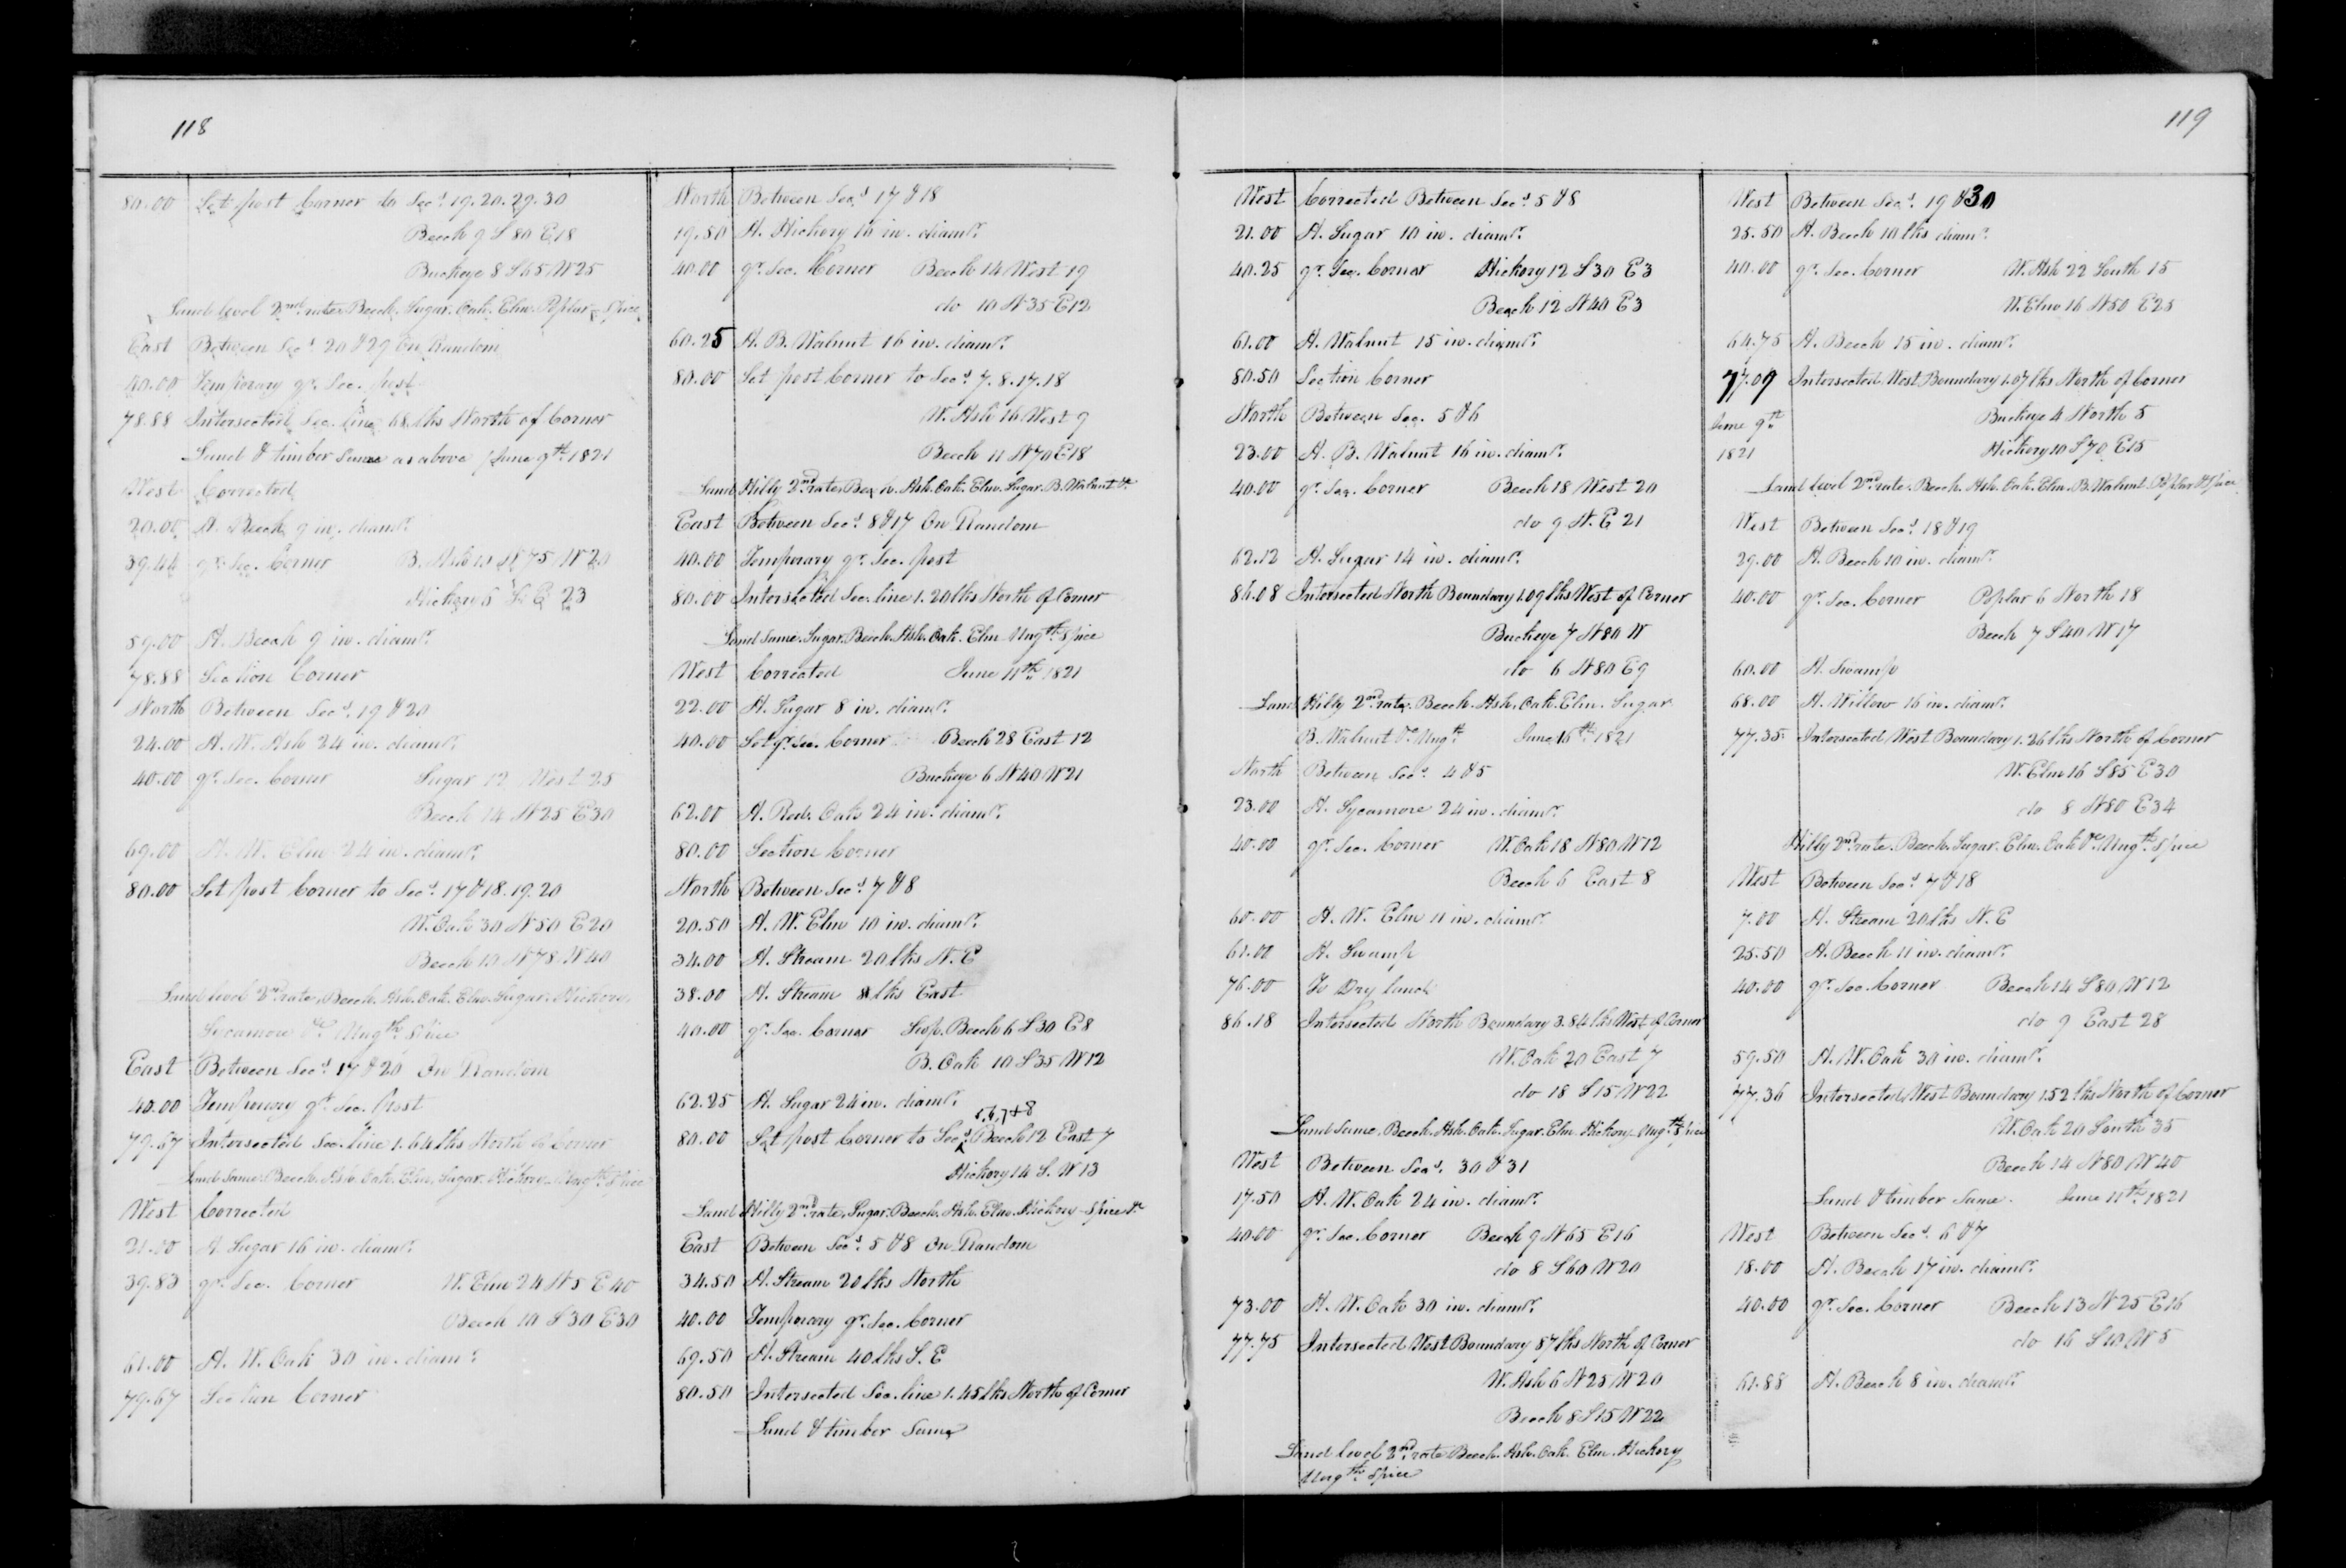 118
80.00 Set post Corner to Secs. 19.20.29.30
Beech 9 S 80 E 18
Buckeye 8 S 65 W 25
Land level 2nd rate, Beech. Sugar. Oak. Elm. Poplar Spice
East Between Secs. 20 & 29 On Random
40.00 Temporary qr. Sec. post
78.88 Intersected Sec. line 68 lks North of Corner
Land & timber Same as above June 9th 1821
West Corrected
20.00 A. Beech 9 in. diamr.
39.44 qr. Sec. Corner B. Ash 10 75 W 20
Hickory 6 S. E 23
59.00 A. Beech 9 in. diamr.
78.88 Section Corner
North Between Secs. 19 & 20
24.00 A. W. Ash 24 in. diamr.
40.00 qr. Sec. Corner Sugar 12 West 25
Beech 14 N 25 E 30
69.00 A. W. Elm 24 in. diamr.
80.00 Set post Corner to Secs. 17 & 18. 19. 20
W. Oak 30 N 50 E 20
Beech 10 N 78 W 40
Land level 2nd rate, Beech. Ash. Oak. Elm. Sugar. Hickory
Sycamore &c Ungth Spice
East Between Secs. 17 & 20 On Random
40.00 Temporary qr. Sec. post
79.67 Intersected Sec. line 1.64 lks North of Corner
Land Same. Beech. Ash. Oak. Elm. Sugar. Hickory. Ungth Spice
West Corrected
21.00 A. Sugar 16 in. diamr.
39.83 qr. Sec. Corner W. Elm 24 N 5 E 40
Beech 10 S 30 E 30
61.00 A. W. Oak 30 in. diamr.
79.67 Section Corner
North Between Secs. 17 & 18
19.50 A. Hickory 10 in. diamr.
40.00 qr. Sec. Corner Beech 14 West 19
do 10 N 35 E 12
60.25 A. B. Walnut 16 in. diamr.
80.00 Set post Corner to Secs. 7. 8. 17. 18
W. Ash 16 West 9
Beech 11 N 70 E 18
Land Hilly 2nd rate, Beech. Ash. Oak. Elm. Sugar. B. Walnut &c
East Between Secs. 8 & 17 On Random
40.00 Temporary qr. Sec. post
80.00 Intersected Sec. line 1.20 lks North of Corner
Land Same. Sugar. Beech. Ash. Oak. Elm Ungth. Spice
West Corrected June 11th 1821
22.00 A. Sugar 8 in. diamr.
40.00 Set qr. Sec. Corner Beech 28 East 12
Buckeye 6 N 40 W 21
62.00 A. Red. Oak 24 in. diamr.
80.00 Section Corner
North Between Secs. 7 & 8
20.50 A. W. Elm 10 in. diamr.
34.00 A. Stream 20 lks N. E
38.00 A. Stream 8 lks East
40.00 qr. Sec. Corner Beech 6 S 30 E 8
B. Oak 10 S 35 W 12
62.25 A. Sugar 24 in. diamr.
5, 6, 7 + 8
80.00 Set post Corner to Secs. Beech 12 East 7
Hickory 14 S. W 13
Land Hilly 2nd rate, Sugar. Beech. Ash. Elm. Hickory - Spice &c
East Between Secs. 5 & 8 On Random
34.50 A. Stream 20 lks North
40.00 Temporary qr. Sec. Corner
69.50 A. Stream 40 lks S. E
80.50 Intersected Sec. line 1.45 lks North of Corner
Land & timber Same
119
West Corrected Between Secs. 5 & 8
21.00 A. Sugar 10 in. diamr.
40.25 qr. Sec. Corner Hickory 12 S 30 E 3
Beech 12 N 40 E 3
61.00 A. Walnut 15 in. diamr.
80.50 Section Corner
North Between Sec. 5 & 6
23.00 A. B. Walnut 16 in. diamr.
40.00 qr. Sec. Corner Beech 18 West 20
do 9 N. E 21
62.12 A. Sugar 14 in. diamr.
86.08 Intersected North Boundary 1.09 lks West of Corner
Buckeye 7 N 80 W
do 6 N 80 E 9
Land Hilly 2nd rate, Beech. Ash. Oak. Elm. Sugar
B. Walnut &c Ungth June 16th 1821
North Between Secs. 4 & 5
23.00 A. Sycamore 24 in. diamr.
40.00 qr. Sec. Corner W. Oak 18 N 80 W 12
Beech 6 East 8
60.00 A. W. Elm 11 in. diamr.
61.00 A. Swamp
76.00 To Dry land
86.18 Intersected North Boundary 3.84 lks West of Corner
W. Oak 20 East 7
do 18 S 15 W 22
Land Same. Beech. Ash. Oak. Sugar. Elm. Hickory. Ungth Spice
West Between Secs. 30 & 31
17.50 A. W. Oak 24 in. diamr.
40.00 qr. Sec. Corner Beech 9 N 65 E 16
do 8 S 60 W 20
73.00 A. W. Oak 30 in. diamr.
77.75 Intersected West Boundary 87 lks North of Corner
W. Ash 6 N 25 W 20
Beech 8 S 15 W 22
Land level 2nd rate Beech. Ash. Oak. Elm. Hickory
Ungth Spice
West Between Secs. 19 & 30
25.50 A. Beech 10 lks diamr.
40.00 qr. Sec. Corner W. Ash 22 South 15
W. Elm 16 N 50 E 25
64.75 A. Beech 15 in. diamr.
77.09 Intersected West Boundary 1.07 lks North of Corner
June 9th Buckeye 4 North 5
1821 Hickory 10 S 70 E 15
Land level 2nd rate. Beech. Ash. Oak. Elm. B. Walnut. Poplar & Spice
West Between Secs. 18 & 19
29.00 A. Beech 10 in. diamr.
40.00 qr. Sec. Corner Poplar 6 North 18
Beech 7 S 40 W 17
60.00 A. Swamp
68.00 A. Willow 16 in. diamr.
77.35 Intersected West Boundary 1.26 lks North of Corner
W. Elm 16 S 85 E 30
do 8 N 80 E 34
Hilly 2nd rate. Beech. Sugar. Elm. Oak &c Ungth Spice
West Between Secs. 7 & 18
7.00 A. Stream 20 lks N. E
25.50 A. Beech 11 in. diamr.
40.00 qr. Sec. Corner Beech 14 S 80 W 12
do 9 East 28
59.50 A. W. Oak 30 in. diamr.
77.36 Intersected West Boundary 1.52 lks North of Corner
W. Oak 20 South 35
Beech 14 N 80 W 40
Land & timber Same. June 11th 1821
West Between Secs. 6 & 7
18.00 A. Beech 17 in. diamr.
40.00 qr. Sec. Corner Beech 13 N 25 E 16
do 16 S 10 W 5
61.88 A. Beech 8 in. diamr.